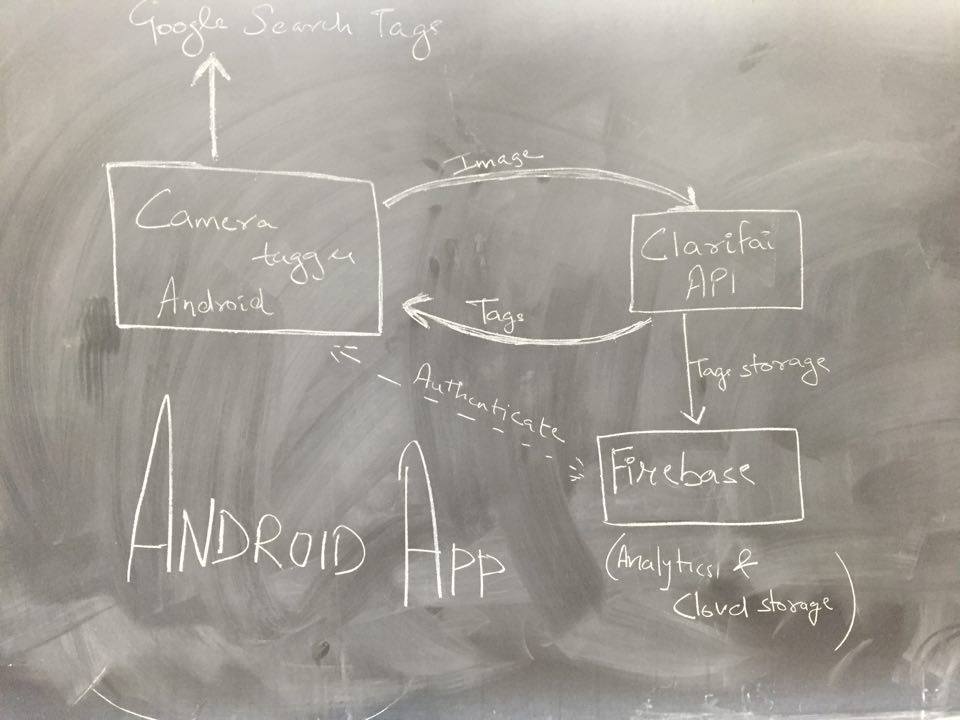 Google Search Tags
Image
Camera
tagger
Android
Clarifai
API
Tags
Tags storage
Authenticate
Firebase
ANDROID APP
(Analytics &
Cloud storage)